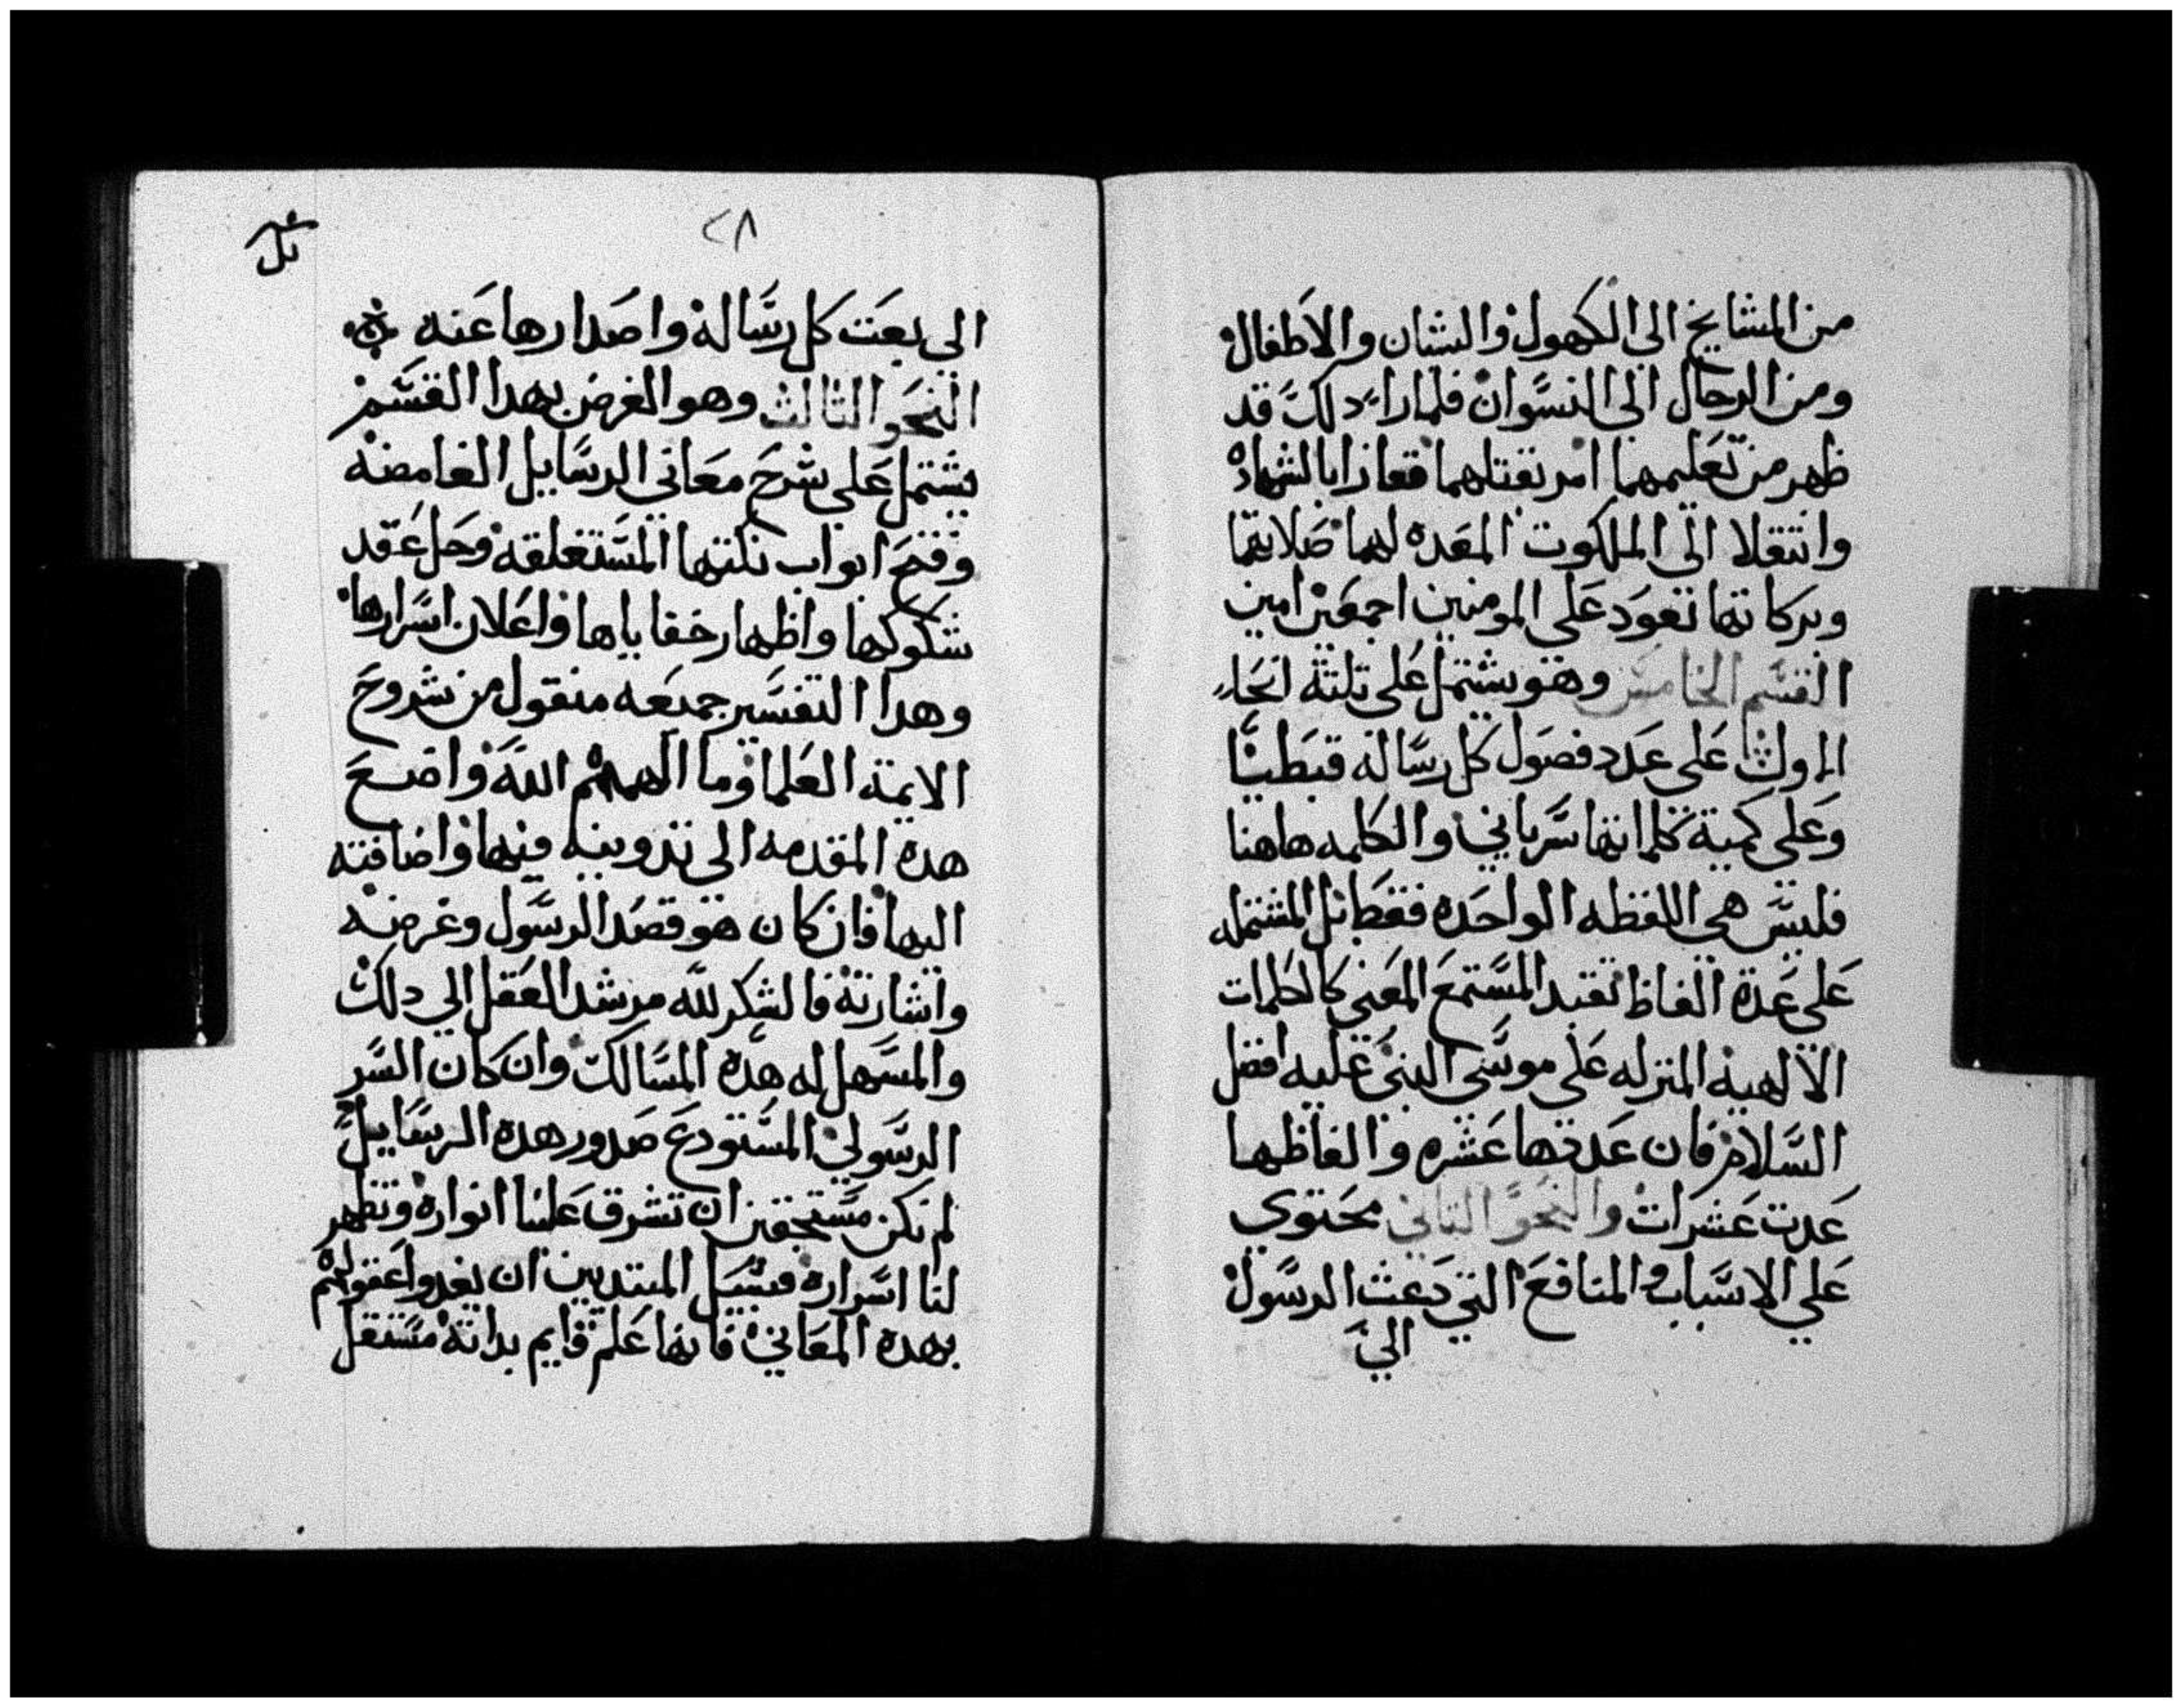 من المشايخ الى الكهول والشبان والاطفال
ومن الرجال الى النسوان فلما راء دلك قد
ظهر من تعليمهما امر بقتلهما ففازا بالشهاده
وانتقلا الى الملكوت المعده لهما صلاتهما
وبركاتهما تعود على المومنين اجمعين امين
القسم الخامس وهو يشتمل على تلتة انحاء
الاول على عدد فصول كل رساله قبطيا
وعلى كمية كلماتها سرياني والكلمه هاهنا
فليس هي اللفظه الواحده فقط بل المشتمله
على عدة الفاظ تفيد المستمع المعنى كالكلمات
الالهيه المنزله على موسى النبي عليه افضل
السلام فان عدتها عشره والفاظها
عدت عشرات والنحو التاني محتوي
علي الاسباب والمنافع التي دعت الرسول
الي
٢٨
الى بعت كل رساله واصدارها عنه
النحو التالت وهو الغرض بهدا القسم
يشتمل على شرح معاني الرسايل الغامضه
وفتح ابواب نكتها المستغلقه وحل عقد
شكوكها واظهار خفاياها واعلان اسرارها
وهدا التفسير جميعه منقول من شروح
الايمة العلما وما الهم الله واضع
هده المقدمه الى تدوينه فيها واضافته
اليها فان كان هو قصد الرسول وغرضه
واشارته فالشكر لله مرشد العقل الي دلك
والمسهل له هده المسالك وان كان السر
الرسولي المستودع صدور هده الرسايل
لم نكن مستحقين ان تشرق علينا انواره وتظهر
لنا اسراره فسبيل المبتديين ان يغدوا عقولهم
بهده المعاني فانها علم قايم بداته مستقل